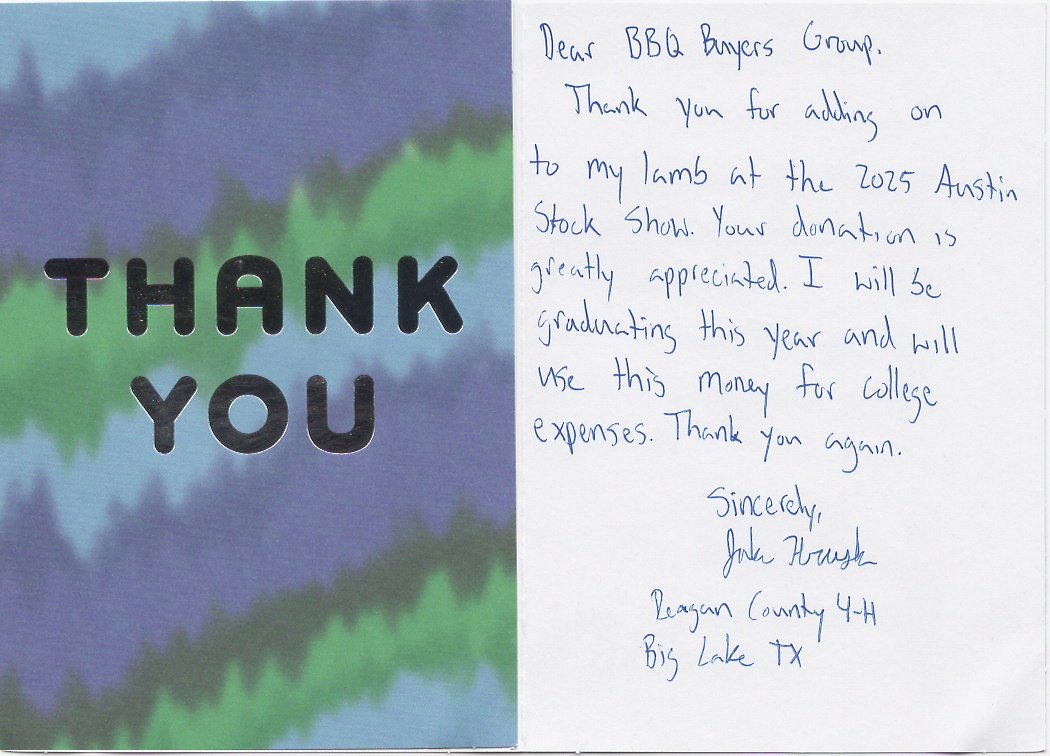 THANK
YOU
Dear BBQ Buyers Group.
Thank you for adding on
to my lamb at the 2025 Austin
Stock Show. Your donation is
greatly appreciated. I will be
graduating this year and will
use this money for college
expenses. Thank you again.
Sincerely,
Reagan County 4-H
Big Lake TX